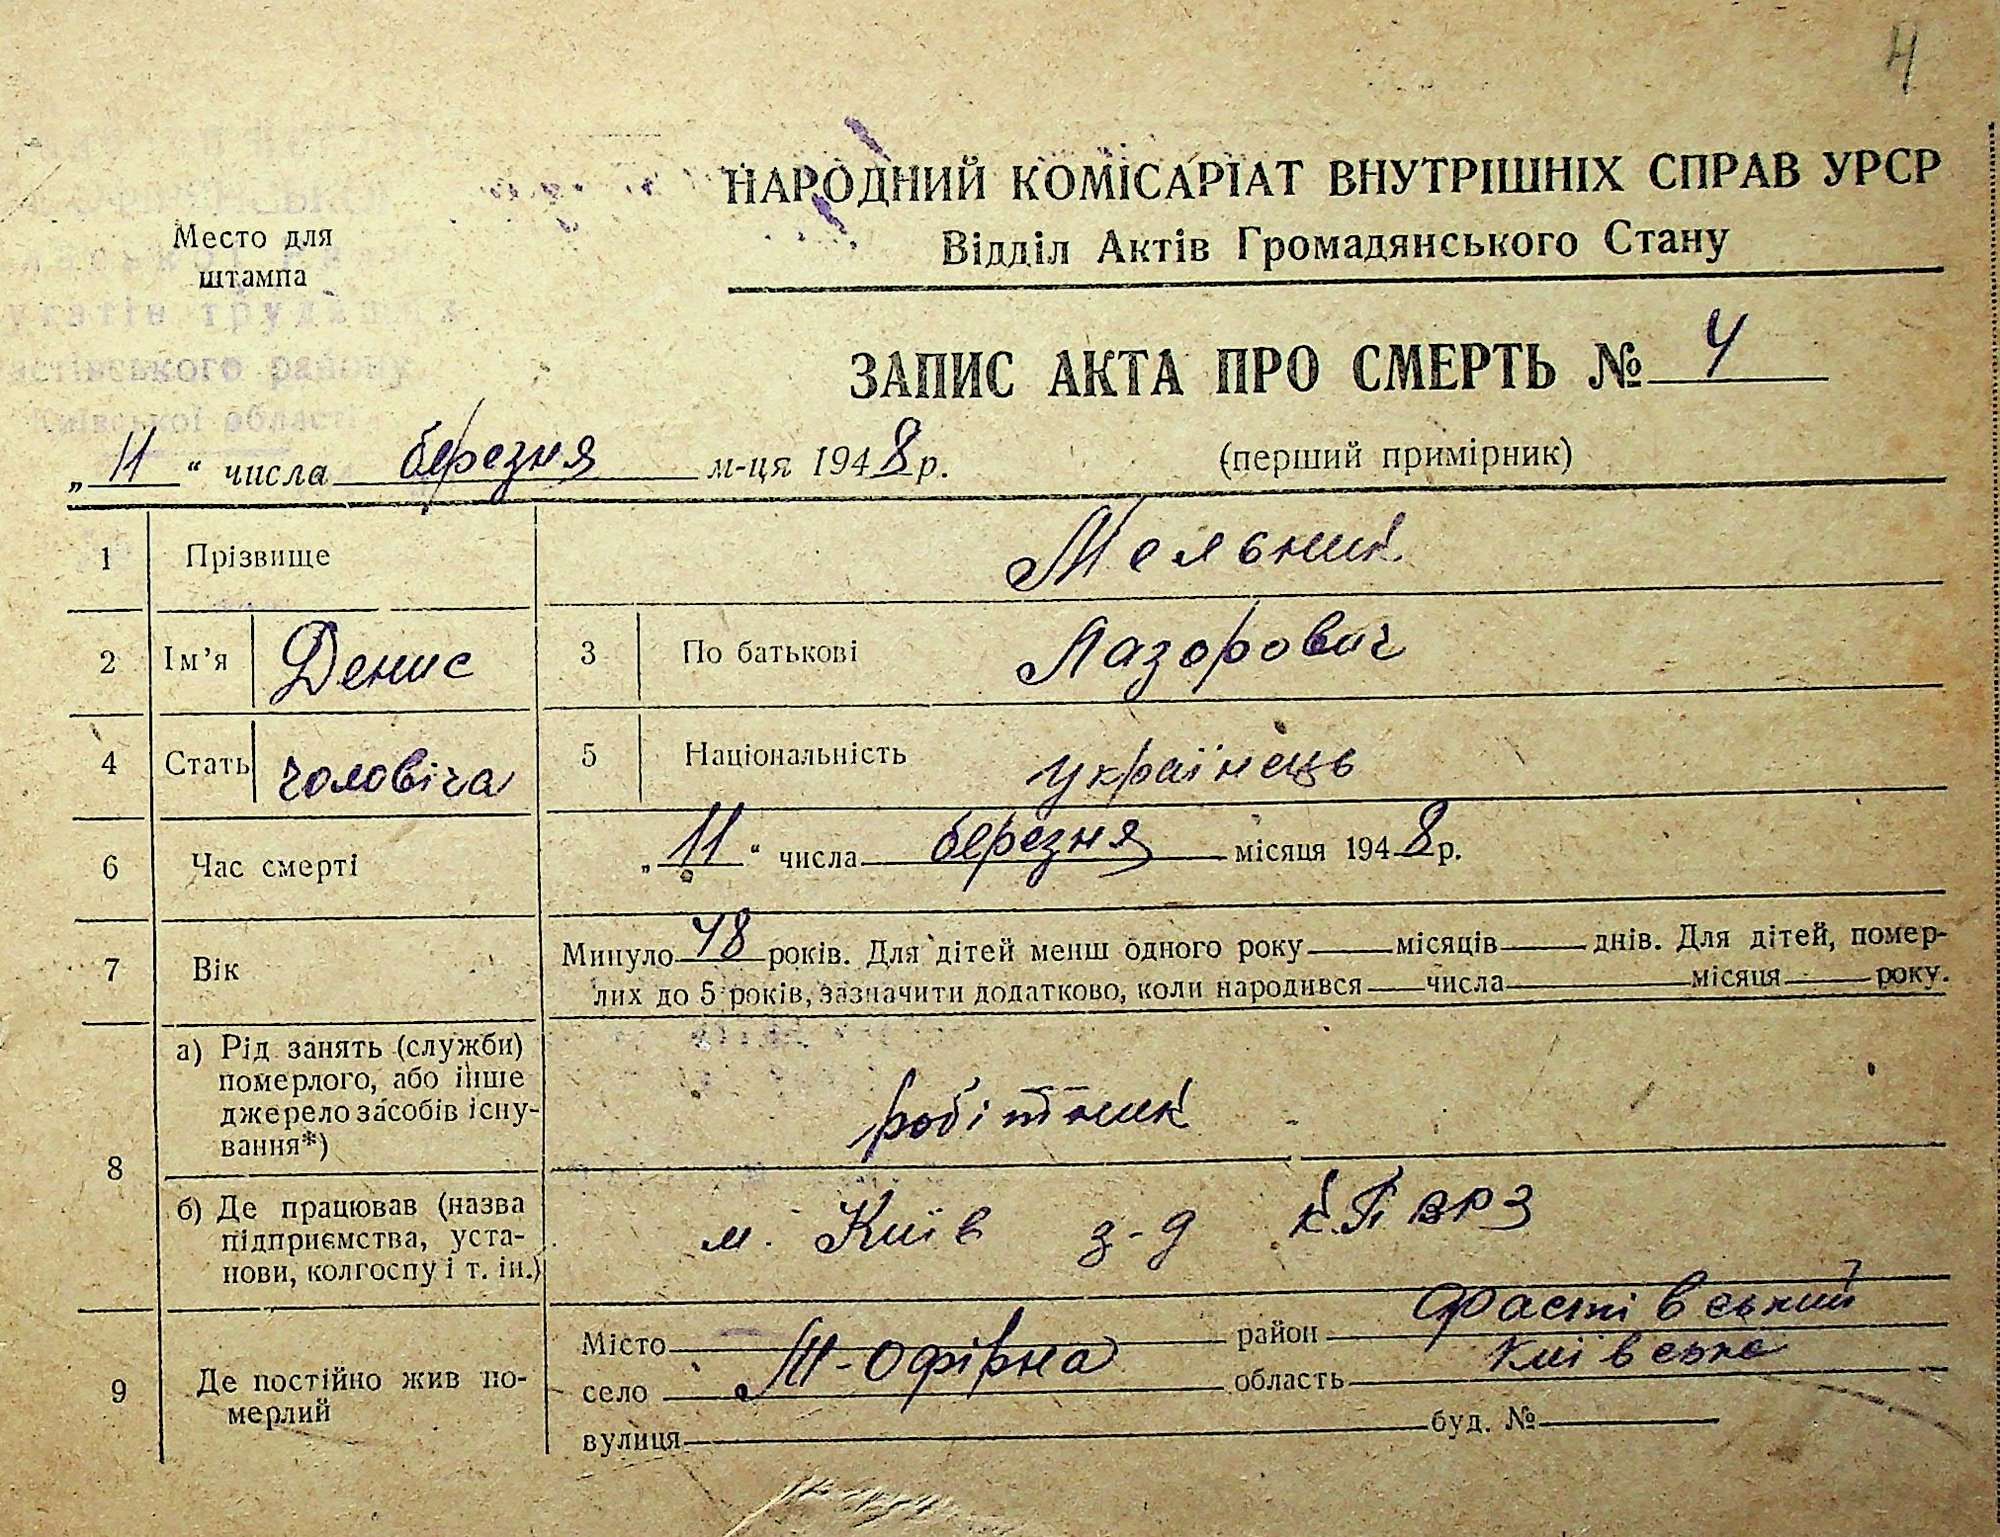 4
НАРОДНИЙ КОМІСАРІАТ ВНУТРІШНІХ СПРАВ УРСР
Відділ Актів Громадянського Стану
Место для
штампа
трудящих
району
Київської області
ЗАПИС АКТА ПРО СМЕРТЬ № 4
„11“ числа березня м-ця 1948 р.
(перший примірник)
1 Прізвище Мельник
2 Ім’я Денис 3 По батькові Лазорович
4 Стать чоловіча 5 Національність українець
6 Час смерті „11“ числа березня місяця 1948 р.
7 Вік Минуло 48 років. Для дітей менш одного року місяців днів. Для дітей, помер-
лих до 5 років, зазначити додатково, коли народився числа місяця року.
8 а) Рід занять (служби)
померлого, або інше
джерело засобів існу-
вання*)
робітник
б) Де працював (назва
підприємства, уста-
нови, колгоспу і т. ін.)
м. Київ з-д К.П ВРЗ
9 Де постійно жив по-
мерлий
Місто район Фастівський
село М-Офірна область Київська
вулиця буд. №